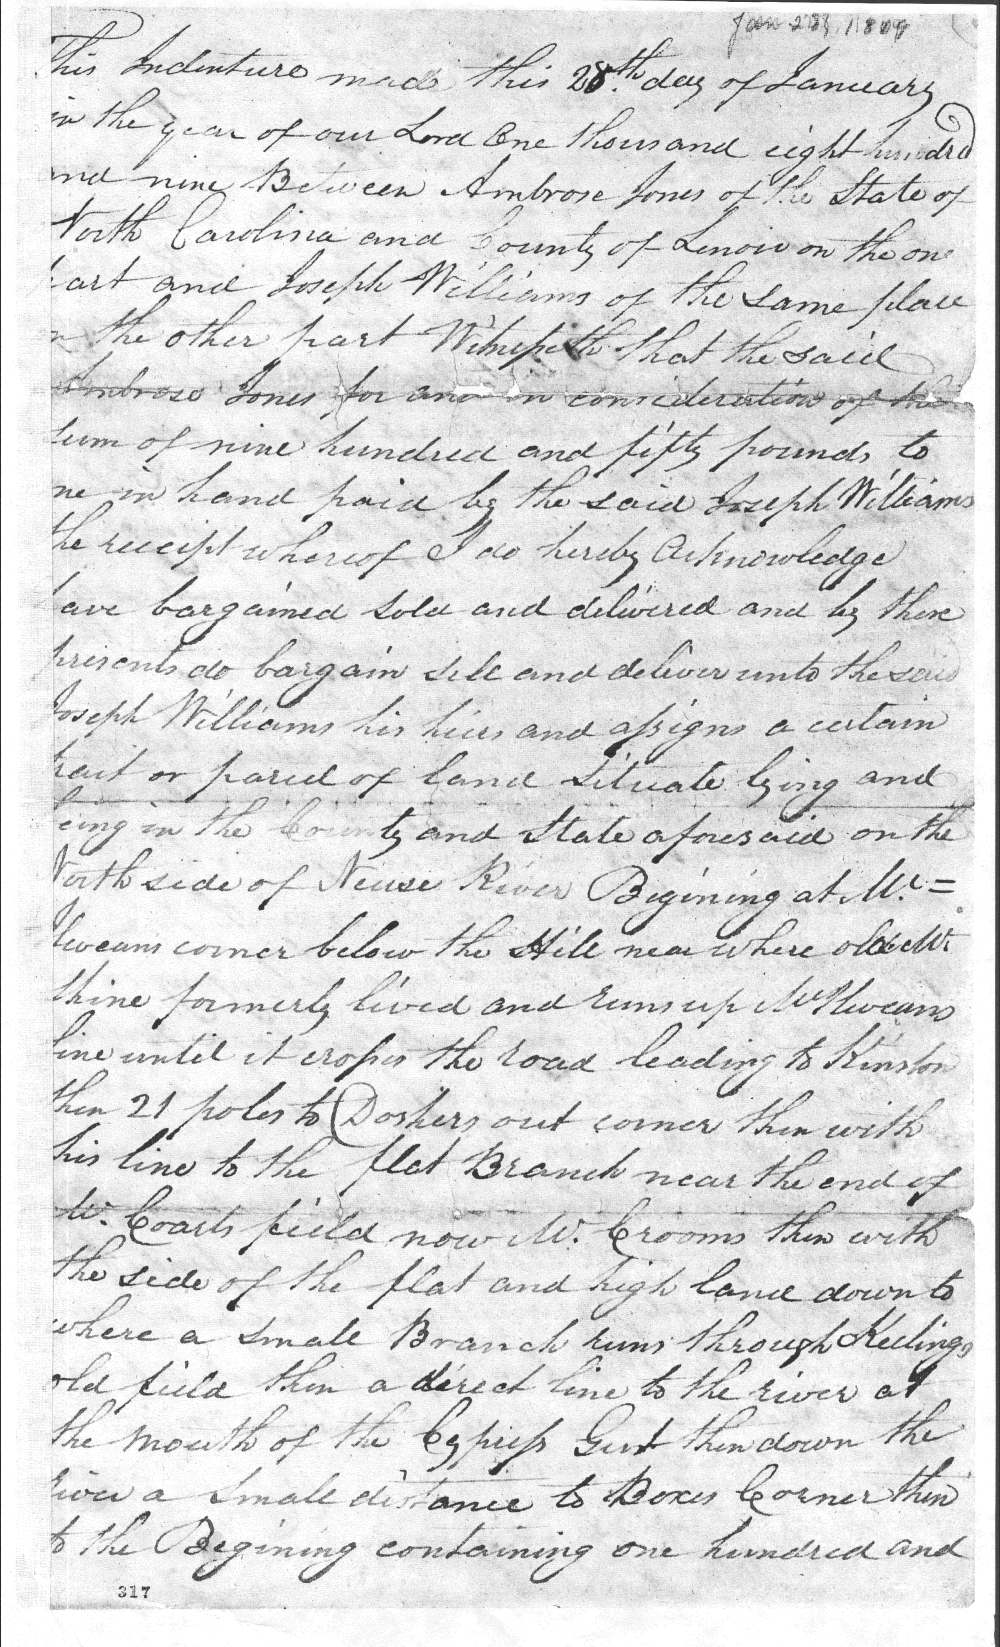 Jan 28, 1809
This Indenture made this 28.th day of January
in the year of our Lord One thousand eight hundred
and nine Between Ambrose Jones of the State of
North Carolina and County of Lenoir on the one
part and Joseph Williams of the same place
n the other part Witnesseth that the said
Ambrose Jones for and in consideration of the
sum of nine hundred and fifty pounds to
me in hand paid by the said Joseph Williams
the receipt whereof I do hereby acknowledge
have bargained sold and delivered and by these
presents do bargain sell and deliver unto the said
Joseph Williams his hiers and assigns a certain
trait or parcel of land Situate lying and
being in the County and State aforesaid on the
North side of Neuse River Begining at Mc=
Ilweans corner below the Hill near where old Mr
Shine formerly lived and runs up McIlweans
line until it crosses the road leading to Kinston
then 21 poles to Doshers out corner then with
his line to the flat Branch near the end of
Mr. Coarts field now Mr. Crooms then with
the side of the flat and high land down to
where a small Branch runs through Keelings
old field then a direct line to the river at
the mouth of the Cypress Gut then down the
river a small distance to Boxes Corner then
to the Begining containing one hundred and
317